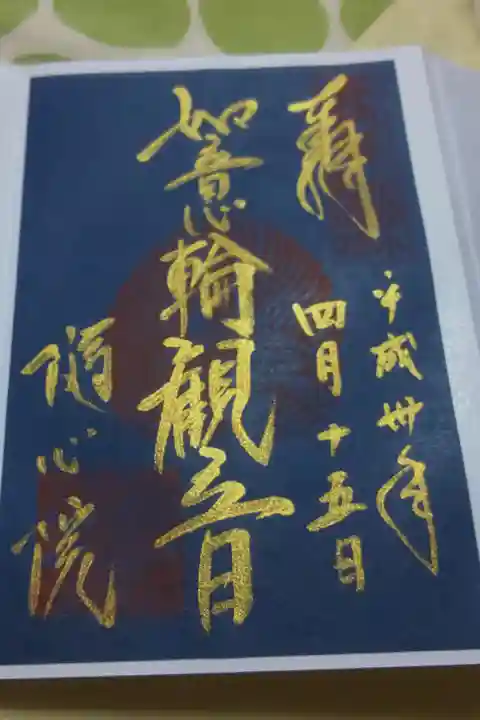 奉拝
平成卅年
四月十五日
如意輪観音
随心院